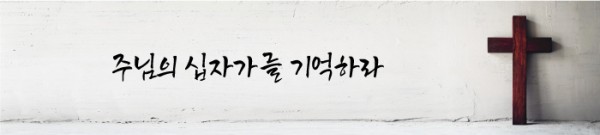 주님의 십자가를 기억하라